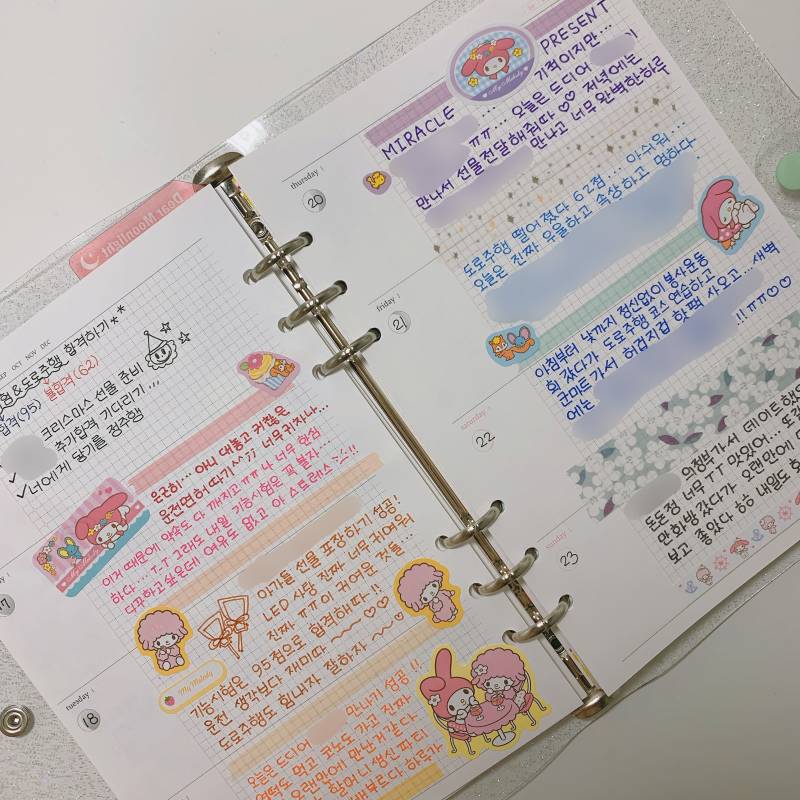 Dear Moonlight
SEP OCT NOV DEC
형&도로주행 합격하기
합격(95) 불합격(62)
크리스마스 선물 준비
✓ 추가합격 기다리기...
✓ 너에게 닿기를 정주행
은근히... 아니 대놓고 귀찮은
운전면허 따기^^;; 너무 귀찮...
이거 때문에 약속도 다 깨지고 ㅠㅠ 나 너무 한심
하다... T-T 그래도 내일 기능시험은 꼭 붙자...
다꾸하고 싶은데 여유도 없고 아 스트레스!!
17
아가들 선물 포장하기 성공!
LED 사탕 진짜 너무 귀여워
진짜 ㅠㅠ이 귀여운 것들...
기능시험은 95점으로 합격해따!! ~~♡♡
운전 생각보다 재미따 ~~
도로주행도 힘내자 잘하자 ~♡
My Melody
tuesday
18
오늘은 드디어 만나기 성공!!
떡도 먹고 코노도 가고 진짜
오랜만에 만난거 같다
할머니 생신 파티
배부르다 하루가
My Melody
MIRACLE PRESENT
기적이지만...
ㅠㅠ... 오늘은 드디어
만나서 선물전달해줘따 ♡♡ 저녁에는
만나고 너무 완벽한하루
thursday
20
도로주행 떨어졌다 62점... 아쉬워...
오늘은 진짜 우울하고 속상하고 멍하다.
friday
21
아침부터 낮까지 정신없이 봉사운동
회 갔다가 도로주행 코스연습하고
군마트가서 허겁지겁 핫팩 사오고... 새벽
에는 !! ㅠㅠ♡♡
saturday
22
의정부가서 데이트했다
돈돈정 너무 ㅜㅜ 맛있어... 또
만화방갔다가 오랜만에
보고 좋았다 ㅎㅎ 내일도
sunday
23